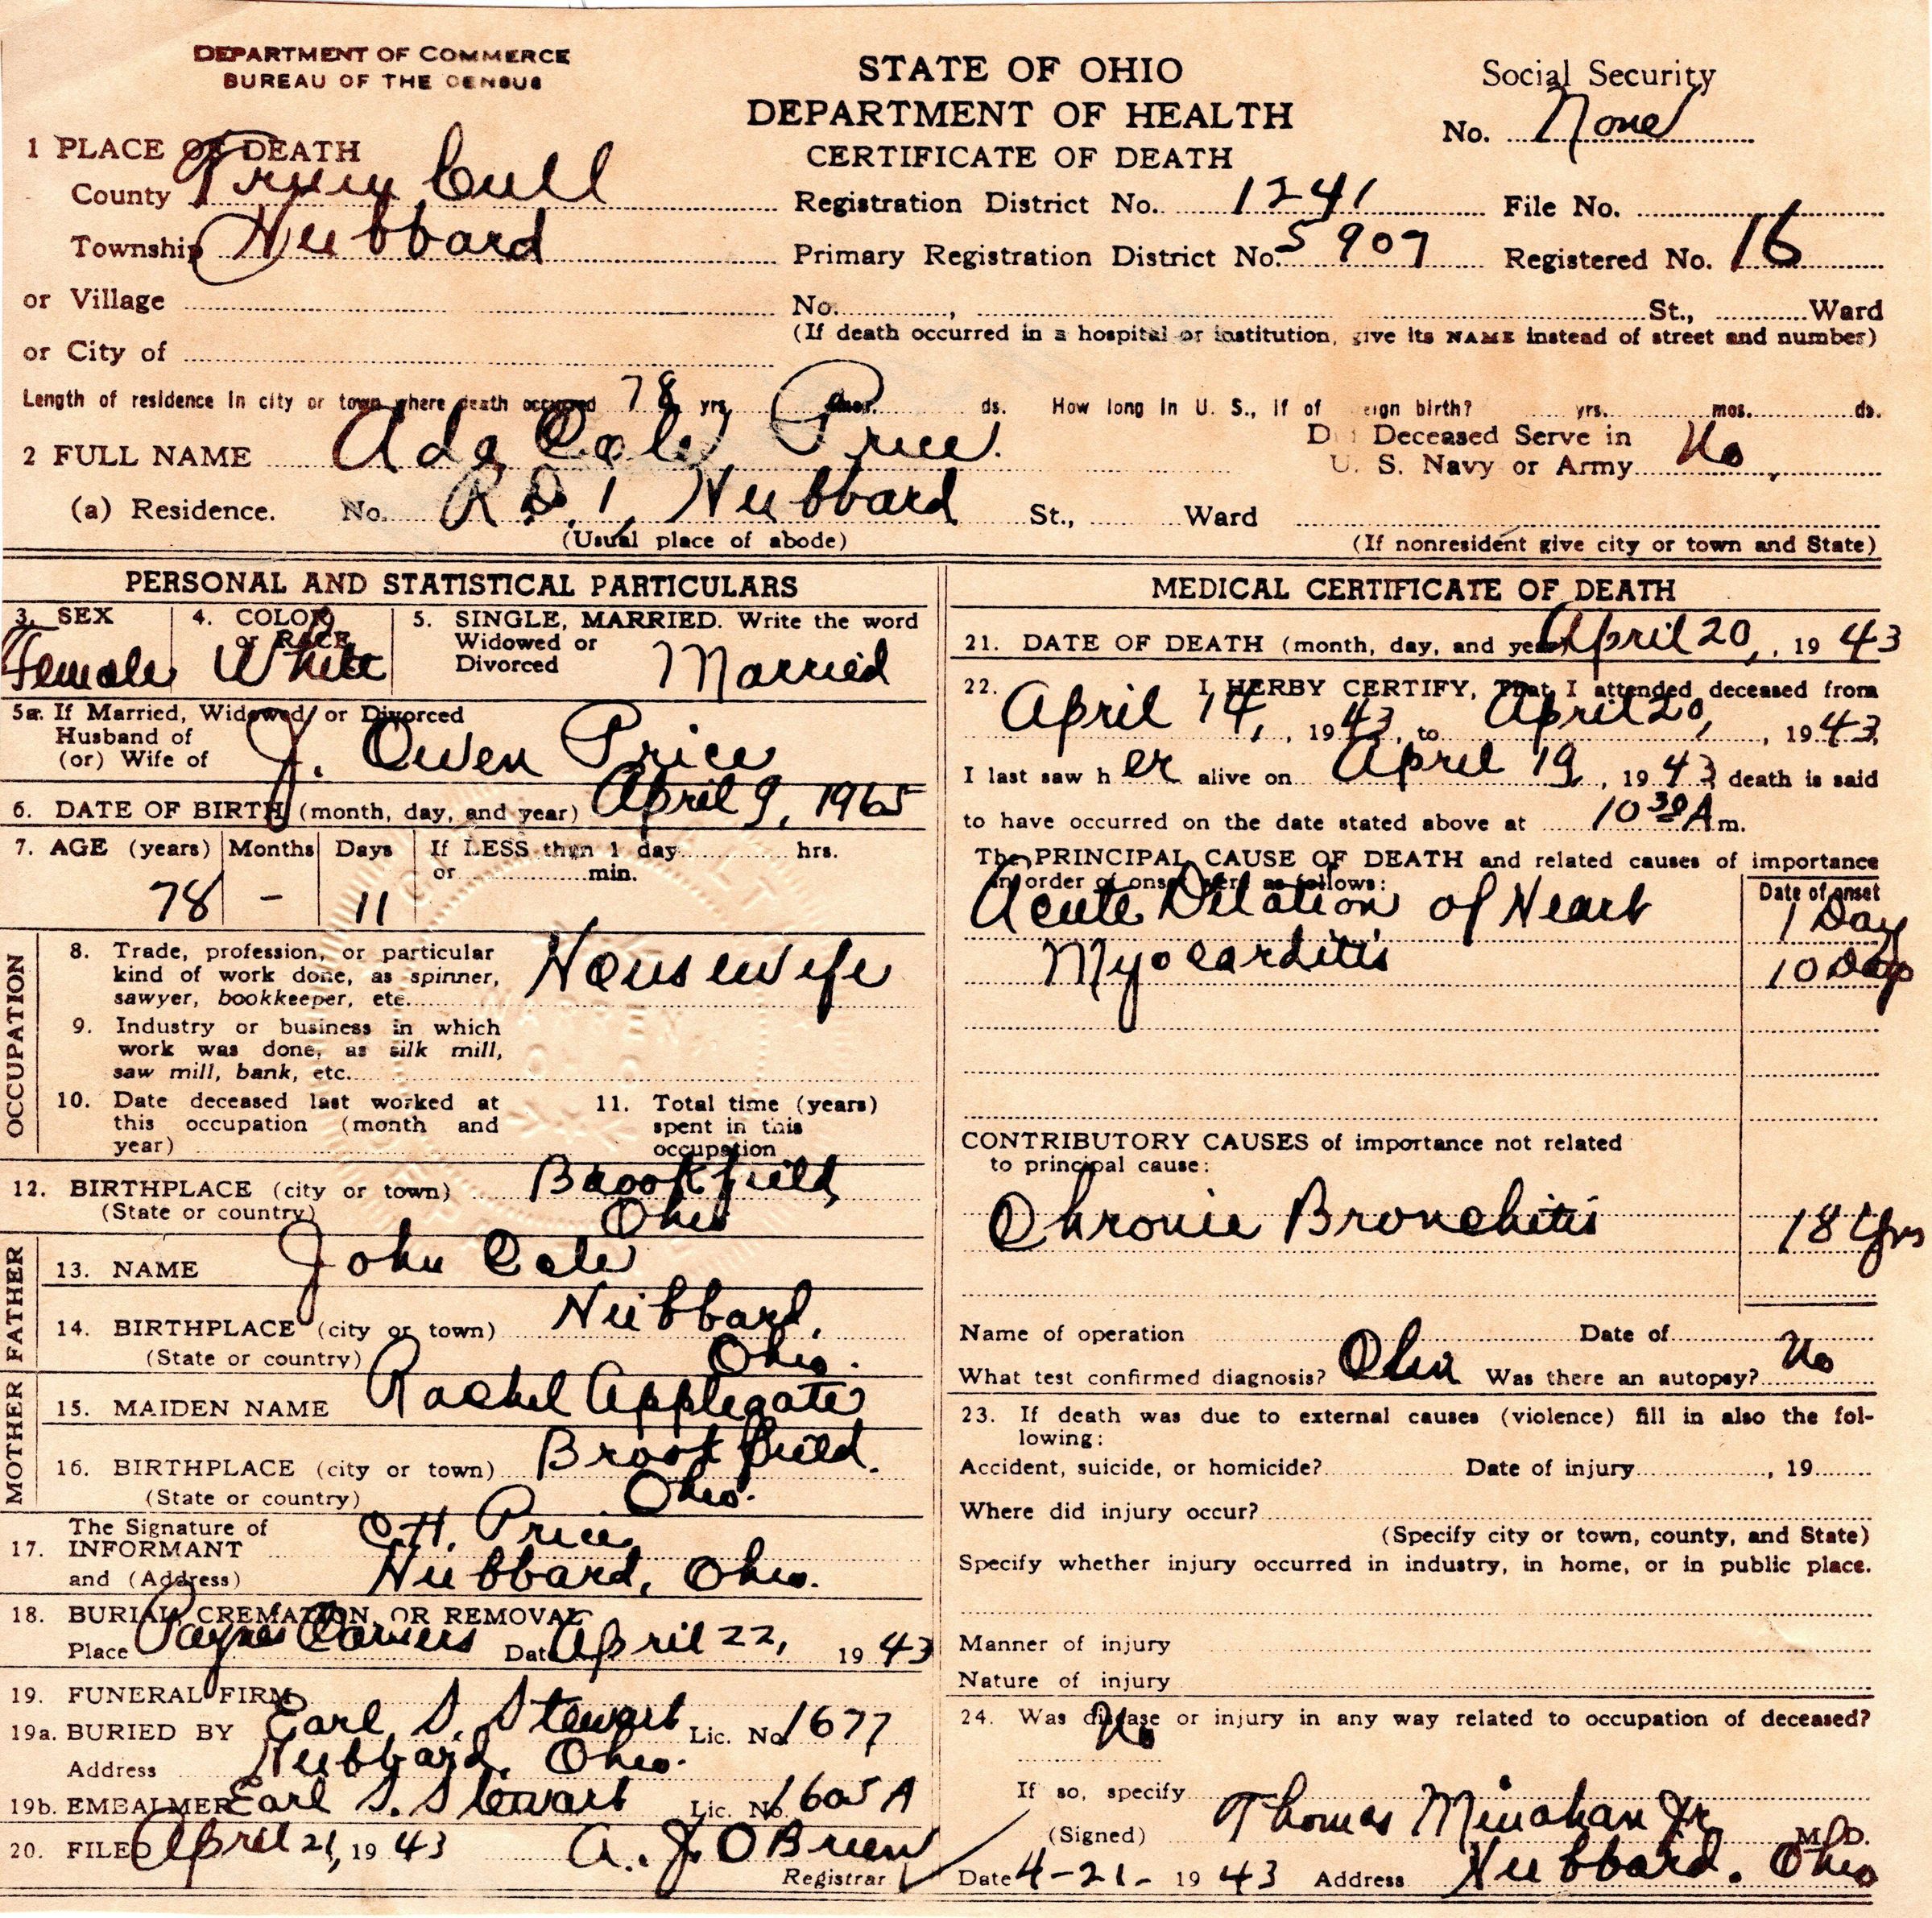 DEPARTMENT OF COMMERCE
BUREAU OF THE CENSUS
STATE OF OHIO
DEPARTMENT OF HEALTH
CERTIFICATE OF DEATH
Social Security
No. None
1 PLACE OF DEATH
County Trumbull
Registration District No. 1241 File No.
Township Hubbard
Primary Registration District No. 5907 Registered No. 16
or Village
No. , St., Ward
(If death occurred in a hospital or institution, give its NAME instead of street and number)
or City of
Length of residence in city or town where death occurred 78 yrs. mos. ds. How long in U. S., if of eign birth? yrs. mos. ds.
2 FULL NAME Ada Cole Price.
D Deceased Serve in
U. S. Navy or Army No
(a) Residence. No. R.D. 1, Hubbard St., Ward
(Usual place of abode)
(If nonresident give city or town and State)
PERSONAL AND STATISTICAL PARTICULARS
3. SEX
Female
4. COLOR
or RACE
White
5. SINGLE, MARRIED. Write the word
Widowed or
Divorced Married
5a. If Married, Widowed, or Divorced
Husband of
(or) Wife of J. Owen Price
6. DATE OF BIRTH (month, day, and year) April 9, 1965
7. AGE (years) Months Days If LESS than 1 day hrs.
or min.
78 - 11
OCCUPATION
8. Trade, profession, or particular
kind of work done, as spinner,
sawyer, bookkeeper, etc. Housewife
9. Industry or business in which
work was done, as silk mill,
saw mill, bank, etc.
10. Date deceased last worked at
this occupation (month and
year)
11. Total time (years)
spent in this
occupation
12. BIRTHPLACE (city or town) Brookfield,
(State or country) Ohio
FATHER
13. NAME John Cole
14. BIRTHPLACE (city or town) Hubbard,
(State or country) Ohio.
MOTHER
15. MAIDEN NAME Rachel Applegate
16. BIRTHPLACE (city or town) Brookfield.
(State or country) Ohio.
17. The Signature of
INFORMANT C.H. Price
and (Address) Hubbard, Ohio.
18. BURIAL, CREMATION, OR REMOVAL
Place Paynes Corners Date April 22, 1943
19. FUNERAL FIRM
19a. BURIED BY Earl S. Stewart Lic. No. 1677
Address Hubbard, Ohio.
19b. EMBALMER Earl S. Stewart Lic. No. 1605 A
20. FILED April 21, 1943 A. J. O'Brien
Registrar
MEDICAL CERTIFICATE OF DEATH
21. DATE OF DEATH (month, day, and year) April 20, , 1943
22. I HERBY CERTIFY, That I attended deceased from
April 14, , 1943, to April 20, , 1943,
I last saw her alive on April 19, , 1943 death is said
to have occurred on the date stated above at 10 30 A m.
The PRINCIPAL CAUSE OF DEATH and related causes of importance
in order of onset were as follows:
Date of onset
Acute Dilation of Heart 1 Day
Myocarditis 10 Days
CONTRIBUTORY CAUSES of importance not related
to principal cause:
Chronic Bronchitis 18 Yrs
Name of operation Date of
What test confirmed diagnosis? Clin Was there an autopsy? No
23. If death was due to external causes (violence) fill in also the fol-
lowing:
Accident, suicide, or homicide? Date of injury , 19
Where did injury occur?
(Specify city or town, county, and State)
Specify whether injury occurred in industry, in home, or in public place.
Manner of injury
Nature of injury
24. Was disease or injury in any way related to occupation of deceased?
No
If so, specify
(Signed) Thomas Minahan Jr. M. D.
Date 4-21- 1943 Address Hubbard. Ohio